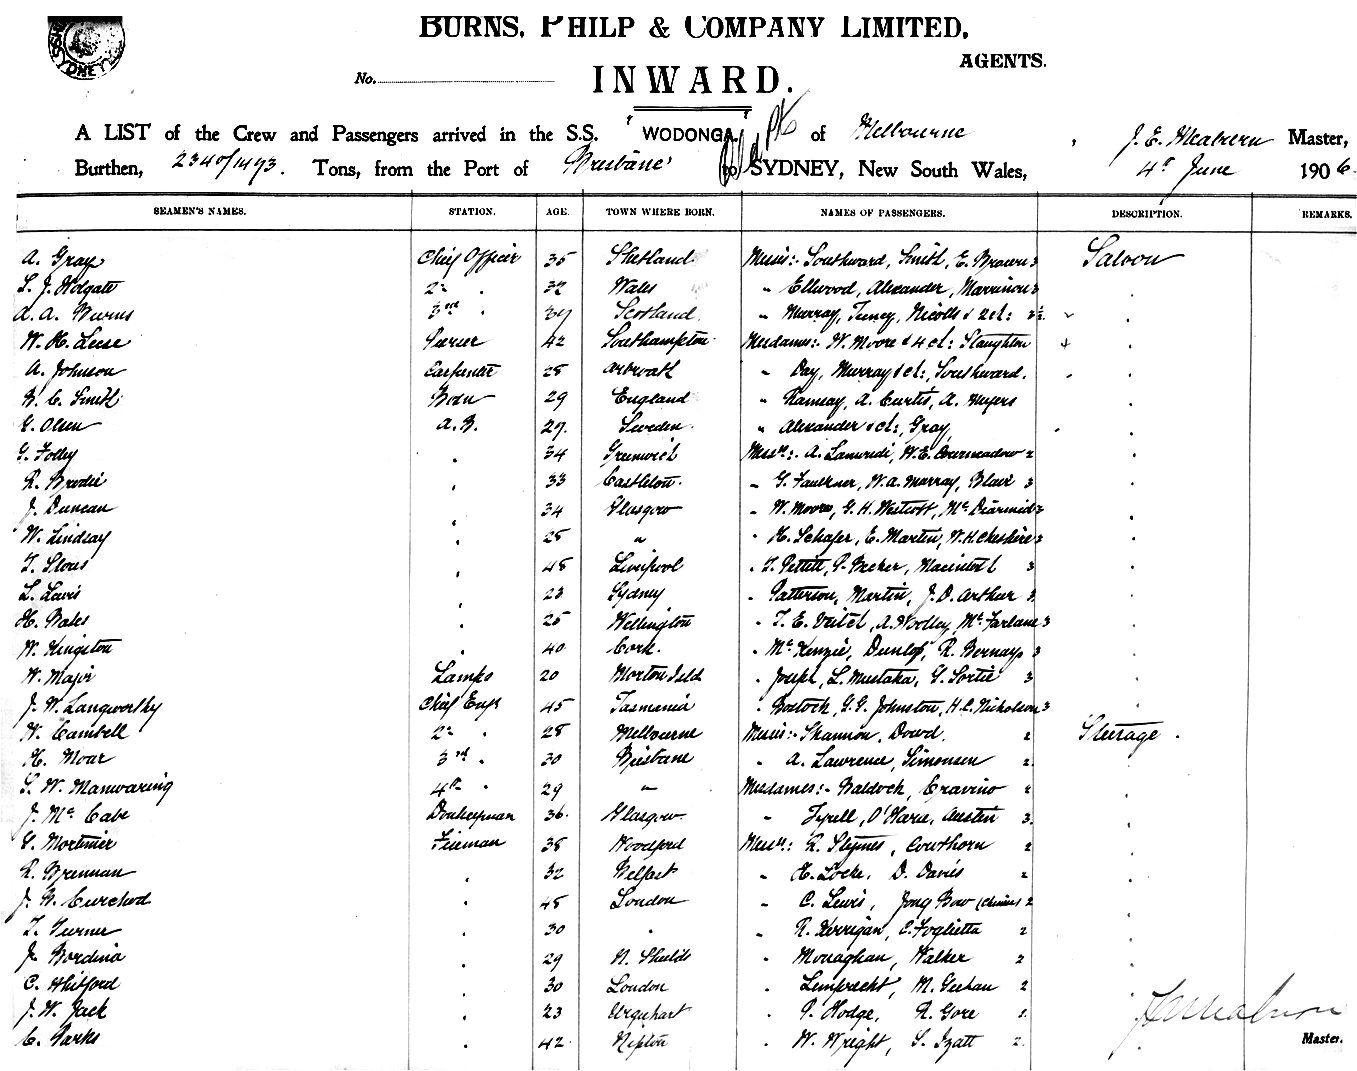 SYDNEY
BURNS, PHILP & COMPANY LIMITED,
AGENTS.
No.
INWARD.
A LIST of the Crew and Passengers arrived in the S.S. "WODONGA" of Melbourne, J. E. Meaburn Master,
Burthen, 2340/1493. Tons, from the Port of Brisbane to SYDNEY, New South Wales, 4th June 1906.
SEAMEN'S NAMES. STATION. AGE. TOWN WHERE BORN. NAMES OF PASSENGERS. DESCRIPTION. REMARKS.
A. Gray Chief Officer 35 Shetland Messrs:- Southward, Smith, E. Brown 3 Saloon
L. J. Holgate 2nd " 32 Wales " Ellwood, Alexander, Marrinon 3
A. A. Burns 3rd " 39 Scotland " Murray, Nicolls & 2 ch:
W. H. Leese Purser 42 Southampton Mesdames:- W. Moore & 4 ch: Staughton
A. Johnson Carpenter 28 Arbroath " Day, Murray & ch:, Southward.
B. C. Smith Bosn 29 England " Ramsay, A. Curtis, A. Meyers
Olsen A.B. 29 Sweden " Alexander & ch:, Gray
G. Folley " 34 Greenwich Messrs:- A.
R. Brodie " 33 Castleton " G. Faulkner, W. A. Murray, Blair 3
J. Duncan " 34 Glasgow " W. Moore, G. H. Westcott, McDiarmid 3
W. Lindsay " 28 " " H. Schafer, E. Martin, W. H. Cheshire 3
T. " 48 Liverpool " T. Pettitt, P. Becker, Macintosh 3
L. Lewis " 23 Sydney " Patterson, Martin, J. D. Arthur 3
H. Bates " 25 Wellington " T. E. Veitch, A. Woolley, McFarlane 3
W. Kingston " 40 Cork. " McKenzie, Dunlop, R. Bernays 3
W. Major Lamps 20 Morton Isld " Joseph, L. Mustaka, G. Sortie 3
J. W. Langworthy Chief Engr 45 Tasmania " Bostock, G. G. Johnston, H. C. Nicholson 3
W. Cambell 2nd " 28 Melbourne Messrs:- Shannon, Dowd, 2 Steerage
H. Moar 3rd " 30 Brisbane " A. Lawrence, Simonsen 2
S. W. Manwaring 4th " 29 " Mesdames:- Baldock, Cravino 2
J. McCabe Donkeyman 36 Glasgow " Tyrell, O'Hare, Austin 3
G. Mortimer Fireman 38 Woodford Messrs: R. Slymes, Cowthorn 2
R. Brennan " 32 Belfast " H. Locke, D. Davis 2
J. B. Curchod " 48 London " C. Lewis, Jong Bow (Chinese) 2
T. Turner " 30 " " R. Kerrigan, C. Foglietta 2
J. Bordino " 29 N. Shields " Monaghan, Walker 2
C. Whitford " 30 London " Lemprecht, M. Geehan 2
J. W. Jack " 23 Urquhart " P. Hodge, R. Gore 2
C. Parks " 42 " W. Wright, S. Izatt 2
Master.